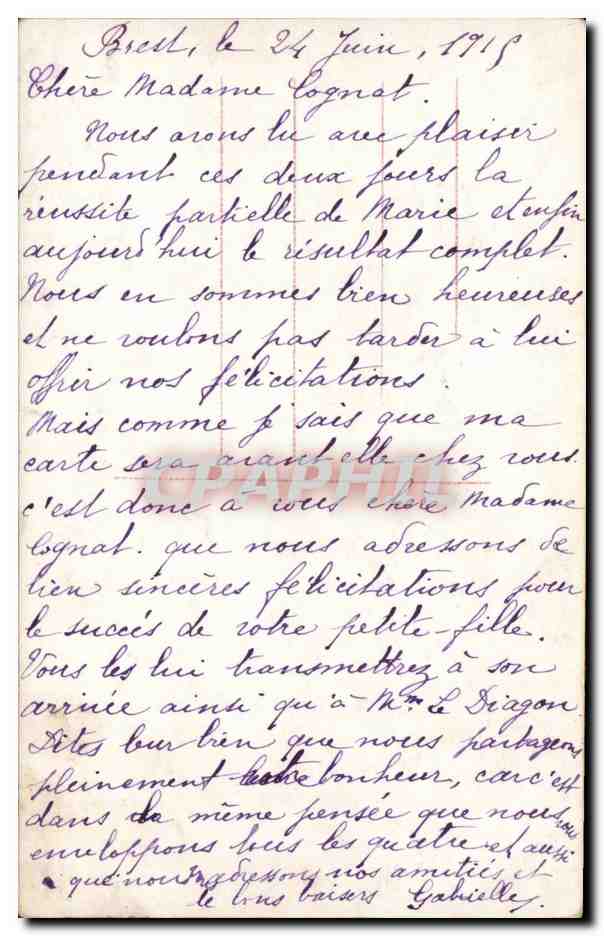 Brest, le 24 Juin, 1915
Chère Madame Cognat.
Nous avons lu avec plaisir
pendant ces deux jours la
réussite partielle de Marie et enfin
aujourd'hui le résultat complet.
Nous en sommes bien heureuses
et ne voulons pas tarder à lui
offrir nos félicitations.
Mais comme je sais que ma
carte sera avant elle chez vous.
CPAPHIL
c'est donc à vous chère Madame
Cognat. que nous adressons de
bien sincères félicitations pour
le succés de votre petite-fille.
Vous les lui transmettrez à son
arrivée ainsi qu'à Mme Le Diagon.
Dites leur bien que nous partageons
pleinement bonheur, car c'est
dans la même pensée que nous vous
enveloppons tous les quatre et aussi
que nous adressons nos amitiés et
de bons baisers Gabrielle.